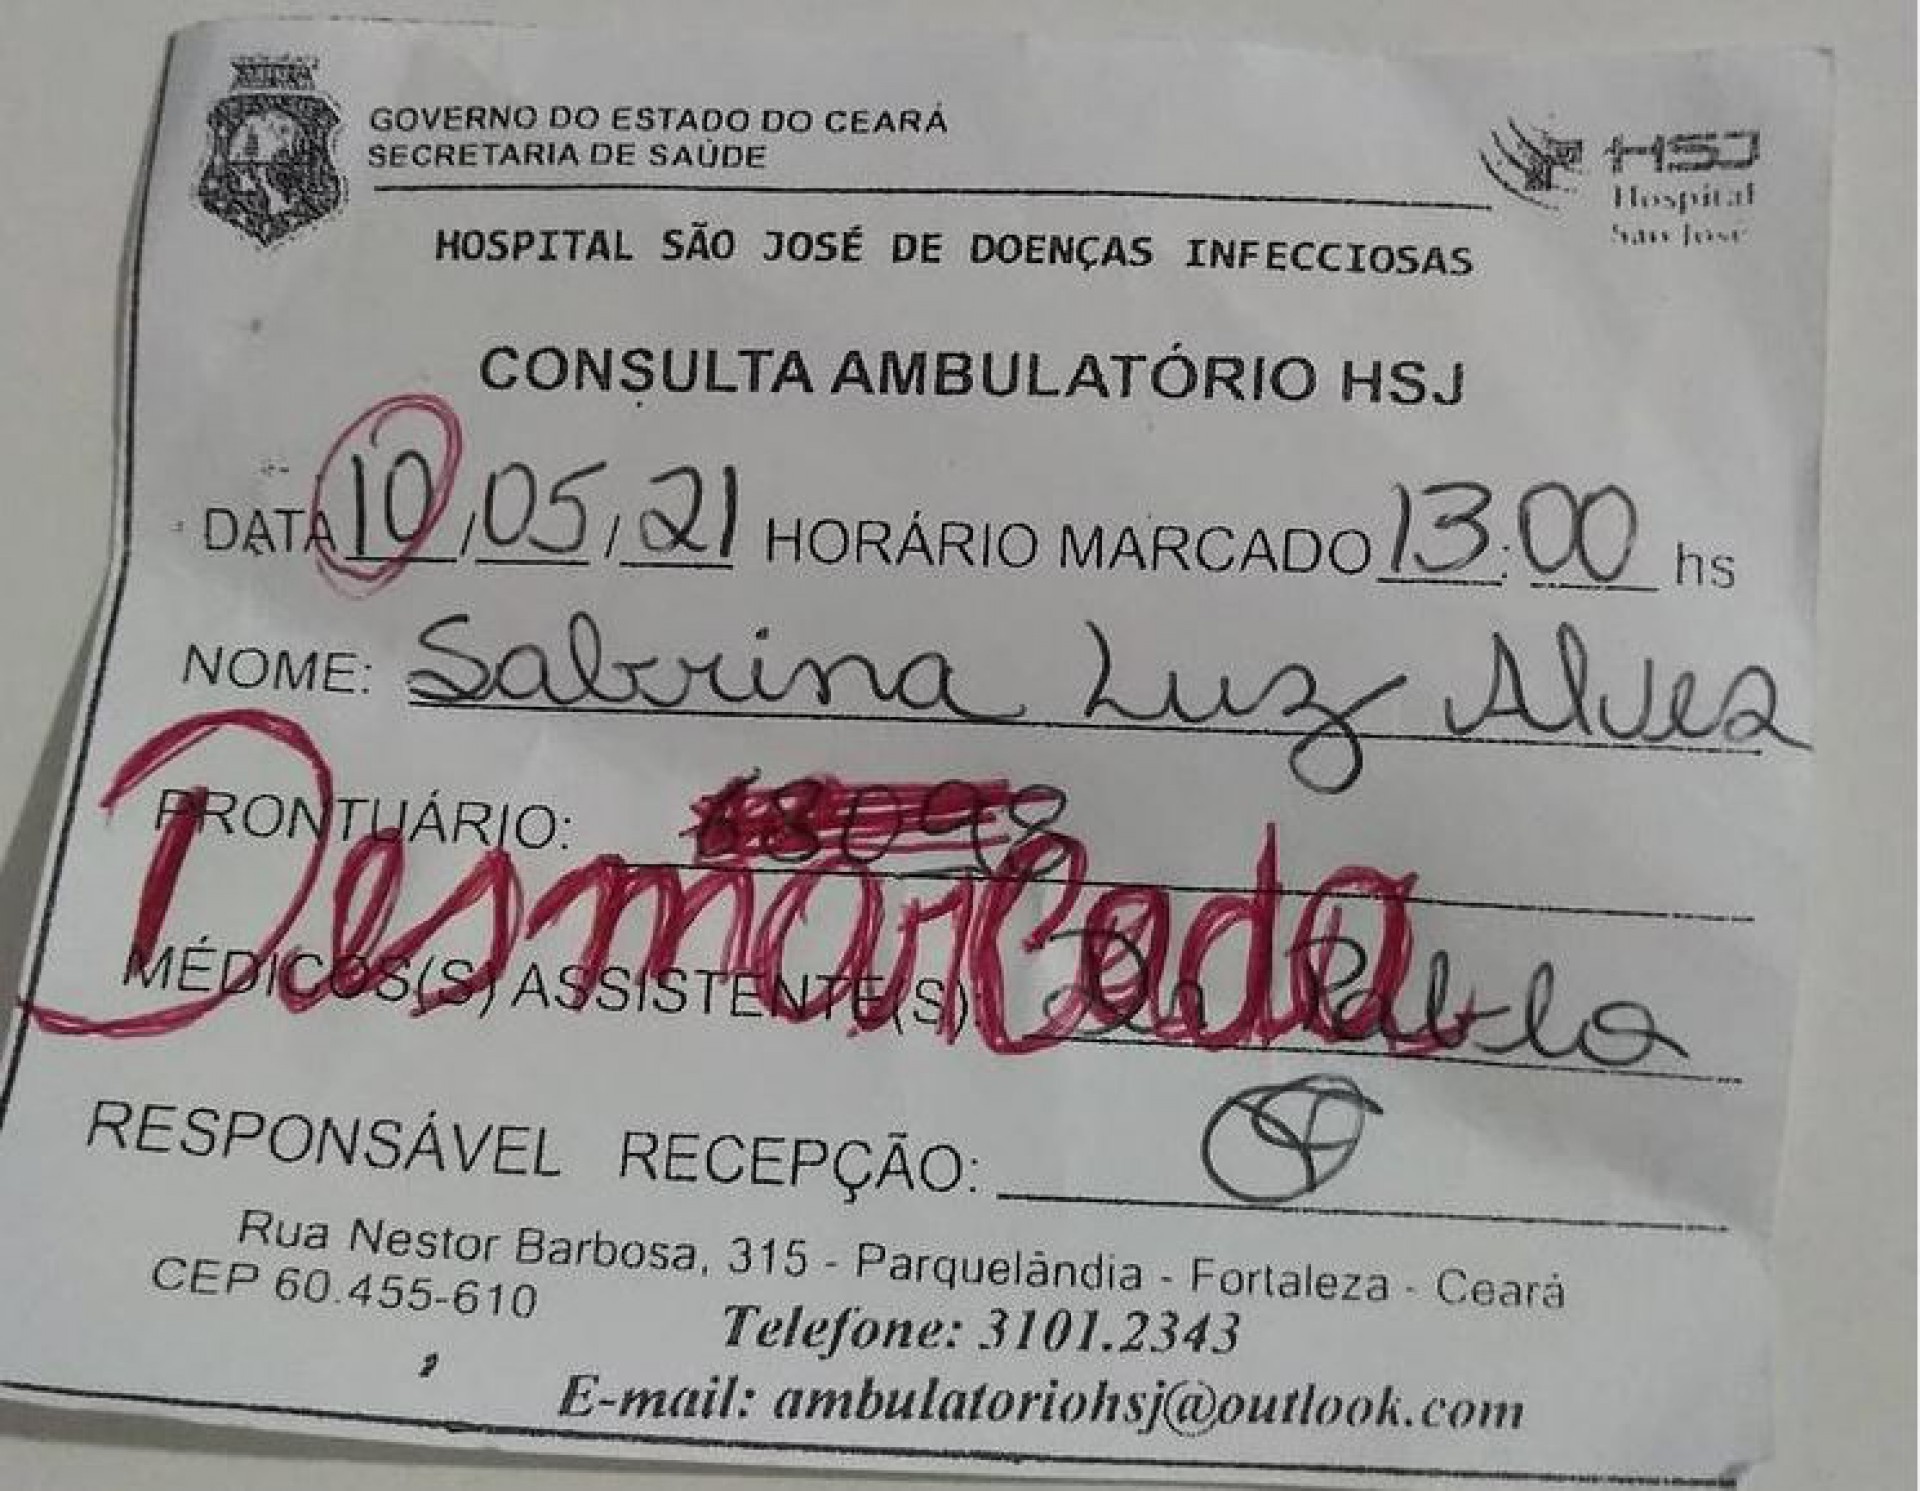 GOVERNO DO ESTADO DO CEARÁ
SECRETARIA DE SAÚDE
HSJ
Hospital
São José
HOSPITAL SÃO JOSÉ DE DOENÇAS INFECCIOSAS
CONSULTA AMBULATÓRIO HSJ
DATA 10/05/21 HORÁRIO MARCADO 13:00 hs
NOME: Sabrina Luz Alves
PRONTUÁRIO:
Desmarcada
MÉDICOS(S) ASSISTENTE(S): Dr Pablo
RESPONSÁVEL RECEPÇÃO:
Rua Nestor Barbosa, 315 - Parquelândia - Fortaleza - Ceará
CEP 60.455-610
Telefone: 3101.2343
E-mail: ambulatoriohsj@outlook.com